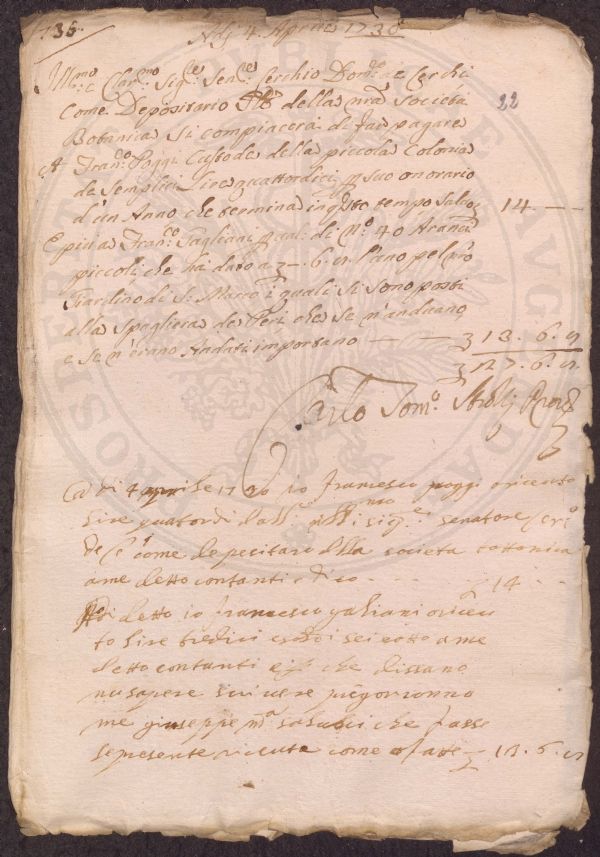 136.
Adj 4. Aprile 1730
Ill.mo e Clar.mo Sig.re Sen.re Cerchio Dom.co de Cerchi
Come Depositario della nr̃a Società
Botanica Si compiacerà di far pagare
22
A Fran.co Poggi Custode della piccola Colonia
de Semplici Lire quattordici p suo onorario
d'un Anno che termina in q.sto tempo 14. —
E piu a Fran.co Gagliani di N.o 40 Aranci
piccoli, che ha dato a —. 6. 8. l'uno pel nro
Giardino di S. Marco i quali si sono posti
alla Spagliera de Peri che se n'andavano
e Se n'erano Andati importano — — 13. 6. 8
127. 6. 8.
Carlo Tom.o Strozzi
A di 4 aprile 1730 io francesco poggi o riceuto
lire quatordi dall Ill.mo sig.e senatore
come depositaro della societa bottanica
a me detto contanti dico - - - 14 - -
detto io francesco galiani o riceu
to lire tredici e soldi sei e otto a me
detto contanti e che dissano
nu sapere scrivere pregorronno
me giuseppe m.a che facessi
la presente riceuta come o fatto 13. 6. 8
PROSPERITATI PUBLICAE AUGENDAE